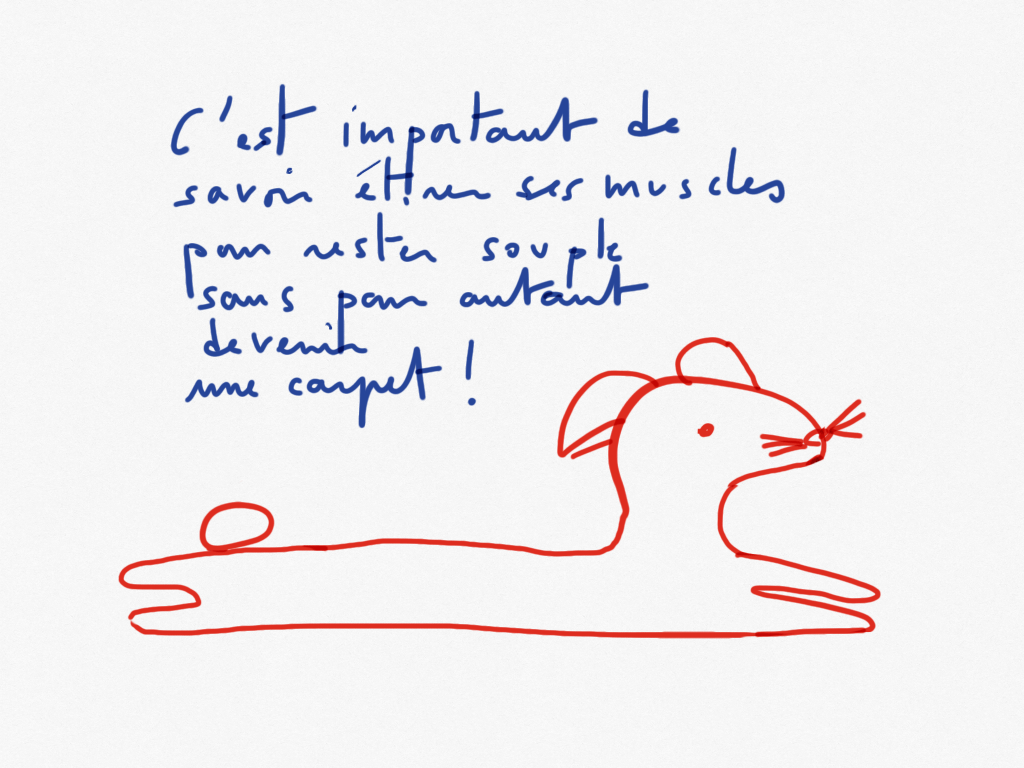 C'est important de
savoir étirer ses muscles
pour rester souple
sans pour autant
devenir
une carpet !